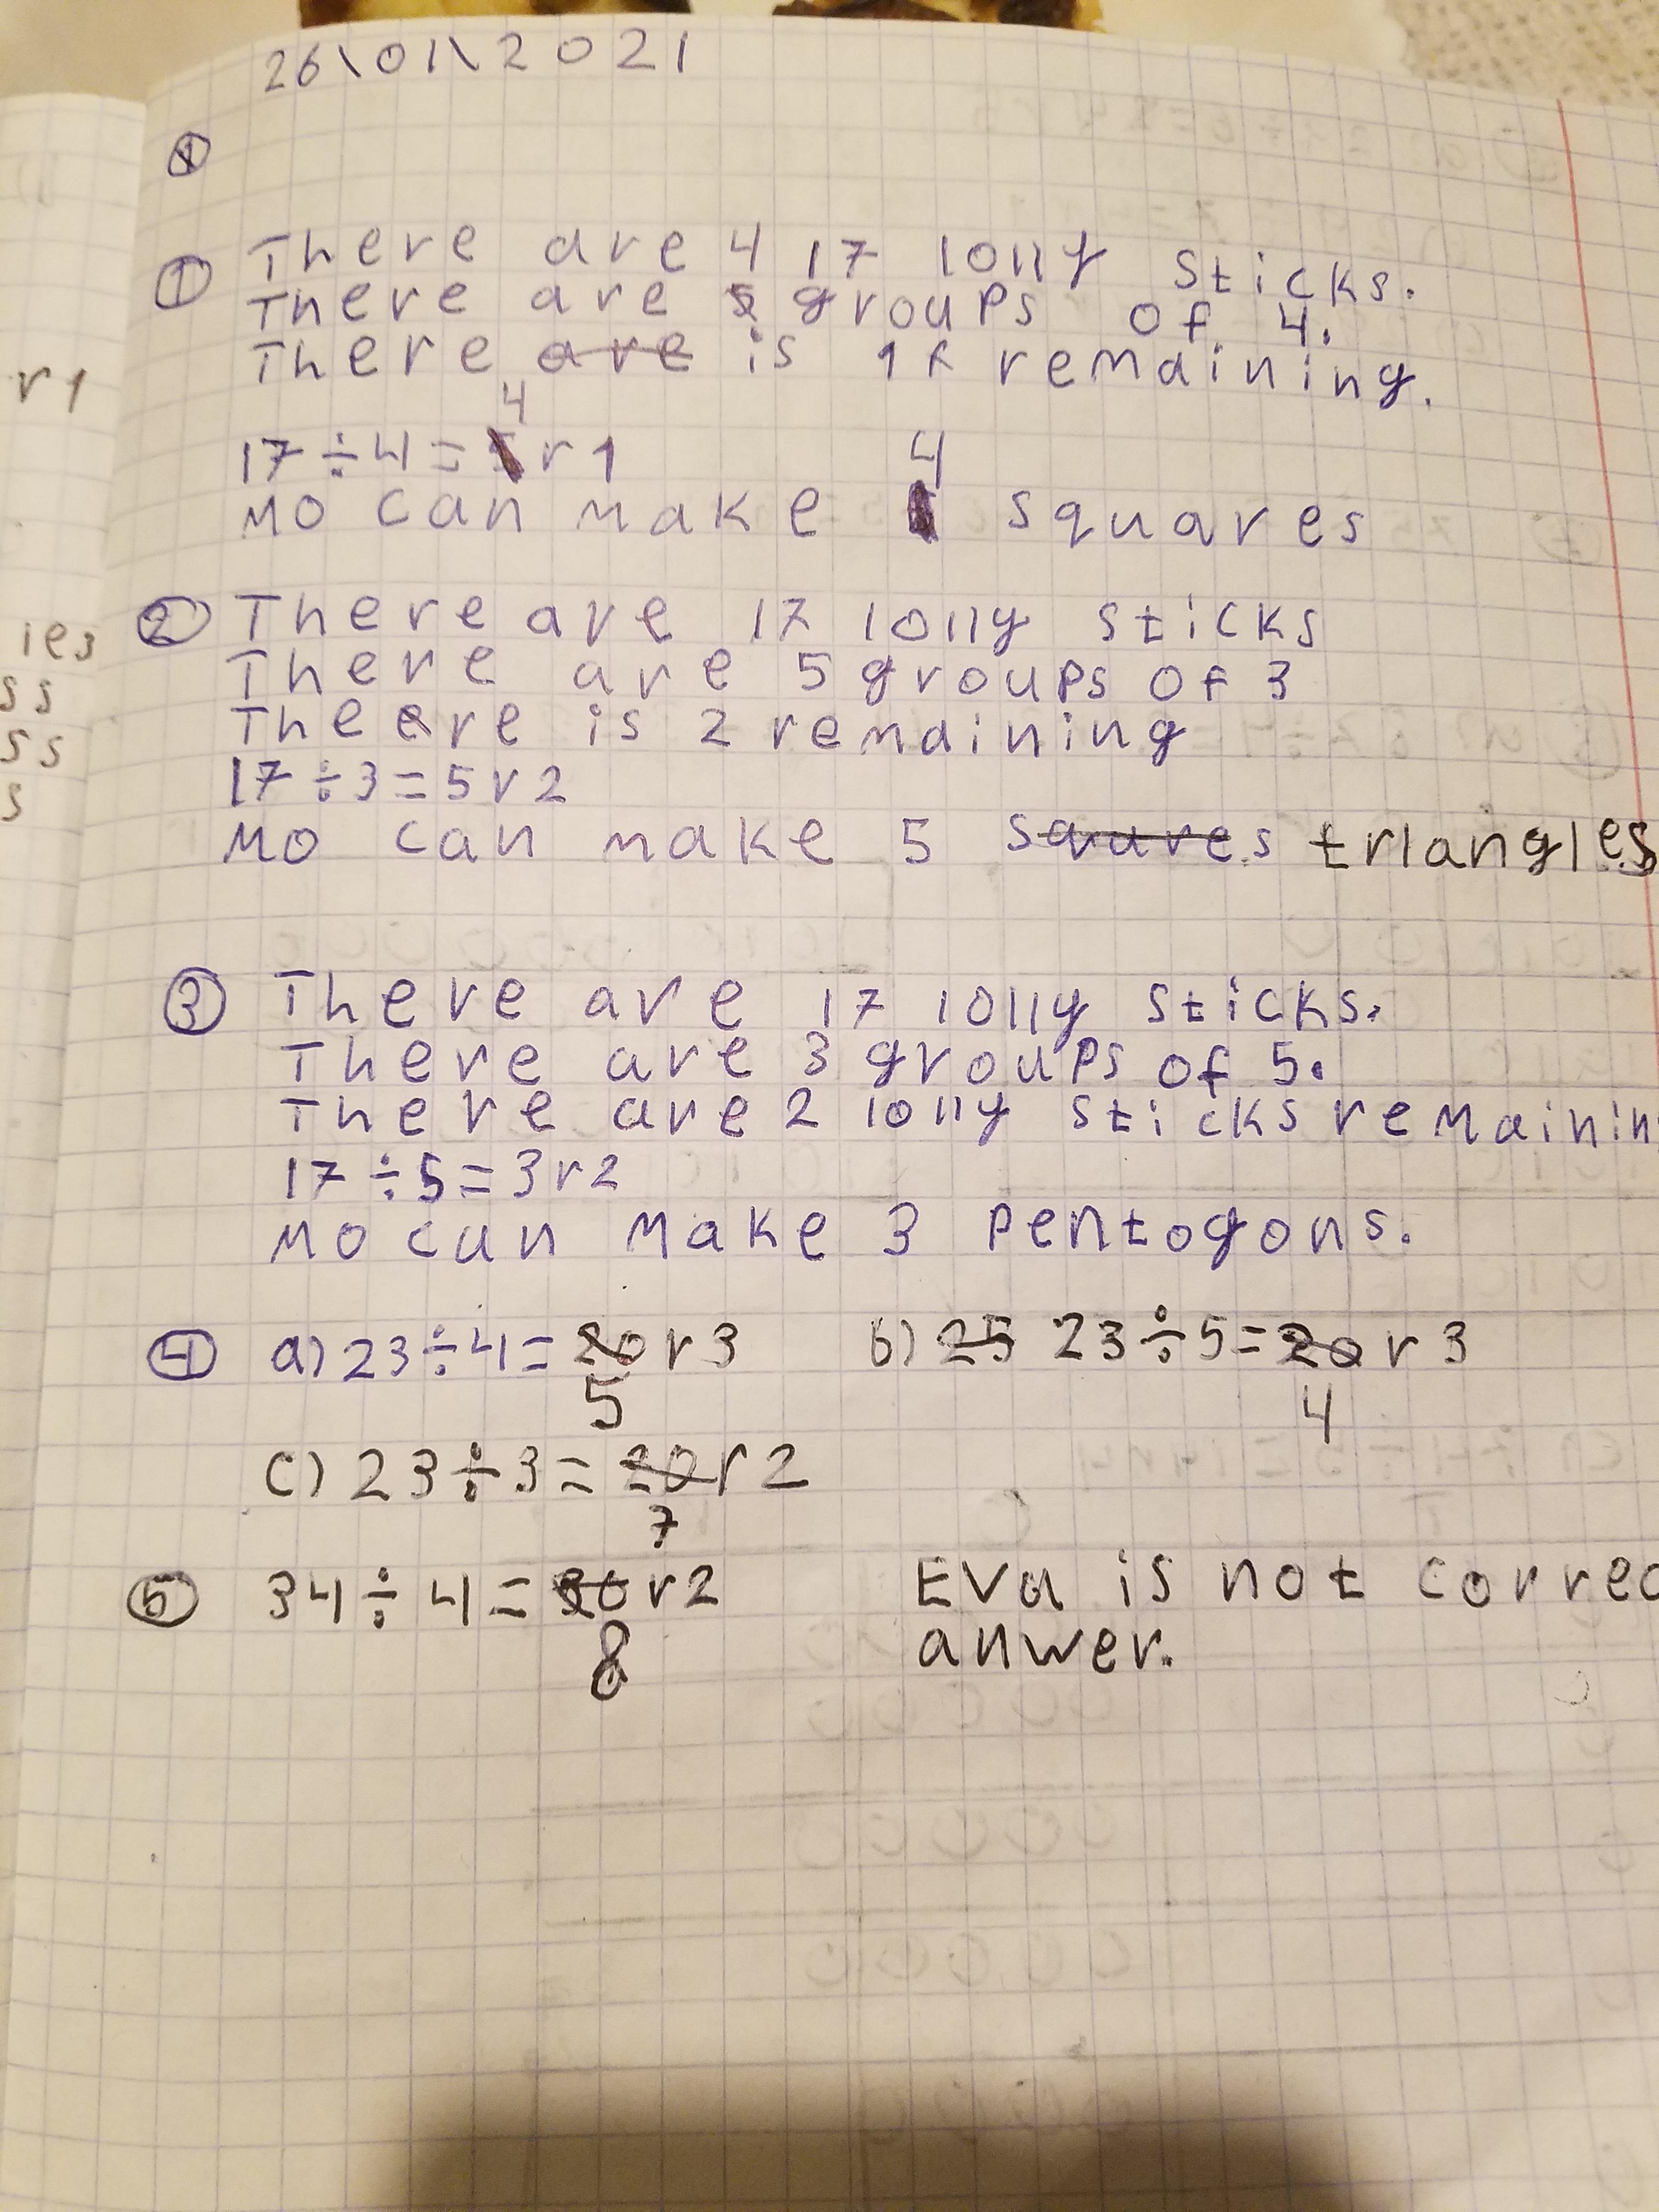 26\01\2021
①
There are 4 17 lolly sticks.
There are groups of 4.
There are is 1 remaining.
4
17÷4= r1
4
Mo can make squares
② There are 17 lolly sticks
There are 5 groups of 3
There is 2 remaining
17÷3=5r2
Mo can make 5 squares triangles
③ There are 17 lolly sticks.
There are 3 groups of 5.
There are 2 lolly sticks remainin
17÷5=3r2
Mo can make 3 pentogons.
④ a) 23÷4=20 r3 b) 25 23÷5=20 r3
5 4
c) 23÷3=20 r2
7
⑤ 34÷4= r2 Eva is not correc
8 anwer.
r1
ies
ss
ss
s